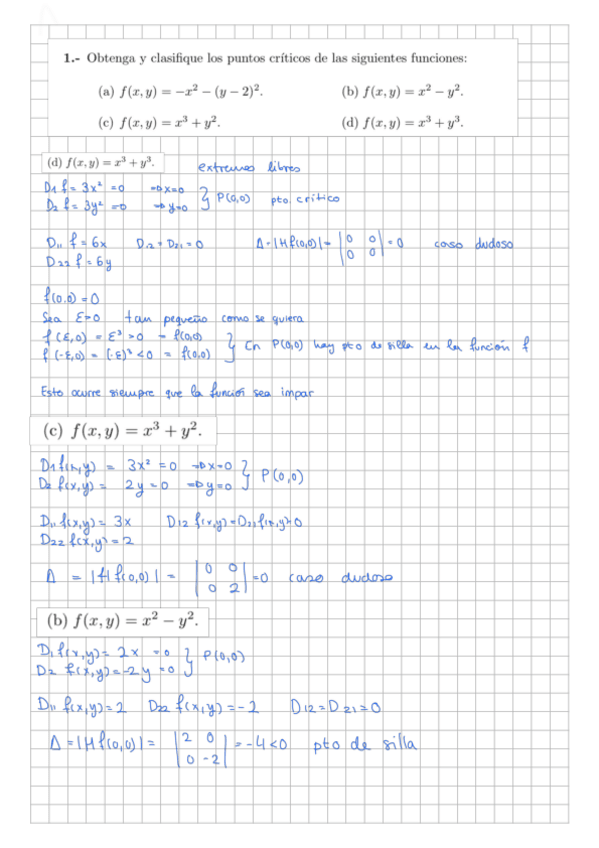 1.- Obtenga y clasifique los puntos críticos de las siguientes funciones:
(a) f(x, y) = −x² − (y − 2)². (b) f(x, y) = x² − y².
(c) f(x, y) = x³ + y². (d) f(x, y) = x³ + y³.
(d) f(x, y) = x³ + y³. extremos libres
D₁ f = 3x² = 0 ⇒ x=0
D₂ f = 3y² = 0 ⇒ y=0 } P(0,0) pto. crítico
D₁₁ f = 6x D₁₂ = D₂₁ = 0 Δ = |Hf(0,0)| = |0 0; 0 0| = 0 caso dudoso
D₂₂ f = 6y
f(0.0) = 0
Sea ε>0 tan pequeño como se quiera
f(ε,0) = ε³ >0 = f(0,0)
f(-ε,0) = (-ε)³ <0 = f(0,0) } En P(0,0) hay pto de silla en la función f
Esto ocurre siempre que la función sea impar
(c) f(x, y) = x³ + y².
D₁ f(x,y) = 3x² = 0 ⇒ x=0
D₂ f(x,y) = 2y = 0 ⇒ y=0 } P(0,0)
D₁₁ f(x,y) = 3x D₁₂ f(x,y) = D₂₁ f(x,y) 0
D₂₂ f(x,y) = 2
Δ = |Hf(0,0)| = |0 0; 0 2| = 0 caso dudoso
(b) f(x, y) = x² − y².
D₁ f(x,y) = 2x = 0
D₂ f(x,y) = -2y = 0 } P(0,0)
D₁₁ f(x,y) = 2 D₂₂ f(x,y) = -2 D₁₂ = D₂₁ = 0
Δ = |Hf(0,0)| = |2 0; 0 -2| = -4 < 0 pto de silla